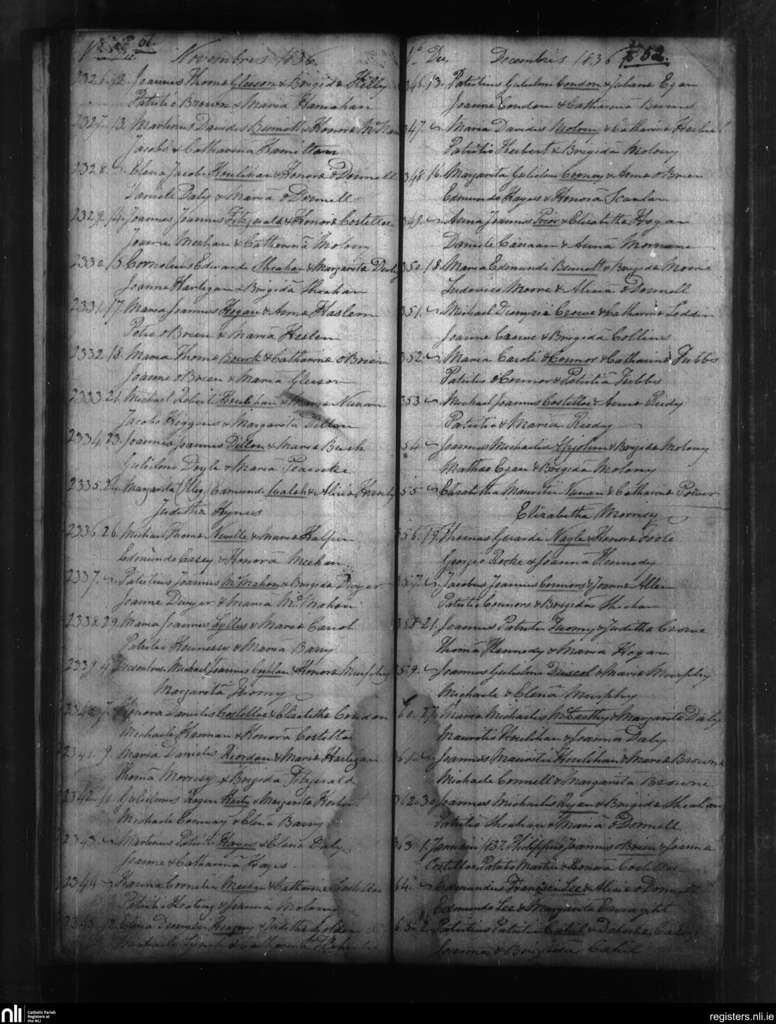 Novembris 1836
2326 12 Joannes Thoma Gleeson & Brigida Kelly
Patritio Brown & Maria Hanrahan
2327 13 Martinus Davidis Bennett & Honora
Jacobo & Catharina Hamilton
2328 ~ Elena Jacobi Houlihan & Honora O Donnell
Daniele Daly & Maria O Donnell
2329 14 Joannes Joannis Fitzgerald & Honora Costelloe
Joanne Meehan & Catharina Molony
2330 15 Cornelius Edwardi Sheahan & Margarita Daly
Joanne Hartegan & Brigida Sheahan
2331 17 Maria Joannis Hogan & Anna Haslem
Petro O Brien & Maria Haslem
2332 18 Maria Thoma Bourk & Catharina O Brien
Joanne O Brien & Maria Gleeson
2333 21 Michael Patritii Houlihan & Maria Nunan
Jacobo Higgins & Margarita Dillon
2334 23 Joannes Joannis Dillon & Maria Bush
Gulielmo Doyle & Maria Peacocke
2335 24 Margarita Edmundi Walsh & Alicia
Juditha Hynes
2336 26 Michael Thoma Neville & Maria Halpin
Edmundo Casey & Honora Meehan
2337 ~ Patritius Joannis McMahon & Brigida Dwyer
Joanne Dwyer & Maria McMahon
2338 29 Maria Joannis Lylles & Maria Carrol
Patritio Hennessy & Maria Barry
2339 Michael Joannis & Honora Murphy
Margarita
2340 Honora Danielis Costelloe & Elisabetha Condon
Michaele & Honora Costelloe
2341 9 Maria Danielis Riordan & Maria Hartigan
Thoma Morrisy & Brigida Fitzgerald
2342 Gulielmus Rogeri & Margarita
Michaele Conway & Elena Barry
2343 ~ Martinus Patritii Hayes & Elena Daly
Joanne & Catharina Hayes
2344 ~ Cornelii Meehan & Catharina Costelloe
Patritio & Joanna Molony
2345 12 Elena & Juditha Golden
Michaele Lynch &
Decembris 1836 52
346 13 Patritius Gulielmi Condon & Juliana Egan
Joanne Condon & Catharina
347 ~ Maria Davidis Molony & Catharina Herbert
Patritio Herbert & Brigida Molony
348 Margarita Gulielmi Cooney & Anna O Brien
Edmundo Hayes & Honora Scanlan
349 ~ Anna Joannis Prior & Elisabetha Hogan
Daniele & Anna
350 18 Maria Edmundi Bennett & Brigida Moore
Ludovico Moore & Alicia O Donnell
351 ~ Michael Dionysii Crowe & Catharina Leddin
Joanne Crowe & Brigida Collins
352 ~ Maria Caroli O Connor & Catharina Tubbs
Patritio O Connor & Patritia Tubbs
353 ~ Michael Joannis Costelloe & Anna Reidy
Patritio & Maria Reidy
54 ~ Joannes Michaelis & Brigida Molony
Matheo Egan & Brigida Molony
55 ~ Elisabetha Mauritii Nunan & Catharina Power
Elizabetha Morrisy
56 19 Thomas Gerardi Nagle & Honora Poole
Georgio Poole & Joanna Kennedy
357 ~ Jacobus Joannis Connors & Joanna Allen
Patritio Connors & Brigida Sheehan
358 21 Joannes Patritii Twomy & Juditha Crowe
Thoma Kennedy & Maria Hogan
359 ~ Joannes Gulielmi Driscol & Maria Murphy
Michaele & Elena Murphy
60 27 Maria Michaelis McCarthy & Margarita Daly
Mauritio Houlihan & Joanna Daly
61 ~ Joannes Mauritii Houlihan & Maria Browne
Michaele Connell & Margarita Browne
362 30 Joannes Michaelis Ryan & Brigida Sheahan
Patritio Sheahan & Maria O Donnell
363 1 Januarii 1837 Philippus Joannis O Brien & Joanna
Costelloe Patritio Martin & Honora Costelloe
64 ~ Edmundus Francisci Lee & Alicia O Donnell
Edmundo Lee & Margarita Enraght
65 2 Patritius Patritii Cahil &
Joanne & Brigida Cahil
nli
Catholic Parish
Registers at
the NLI
registers.nli.ie